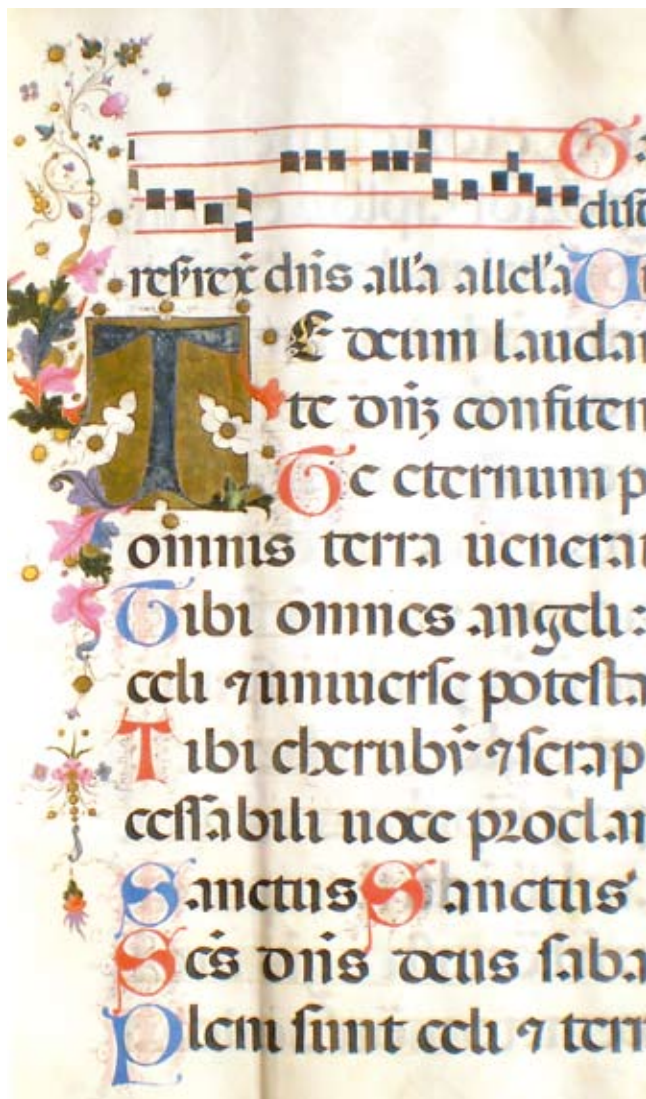 disc
resrex dñs all'a allel'a U
TE deum laudam
te dñz confitem
Te eternum p
omnis terra uenerat
Tibi omnes angeli:
celi ⁊ uniuerse potesta
Tibi cherubȳ ⁊ serap
cessabili uoce proclam
Sanctus Sanctus
Scs dñs deus saba
Pleni sunt celi ⁊ terr